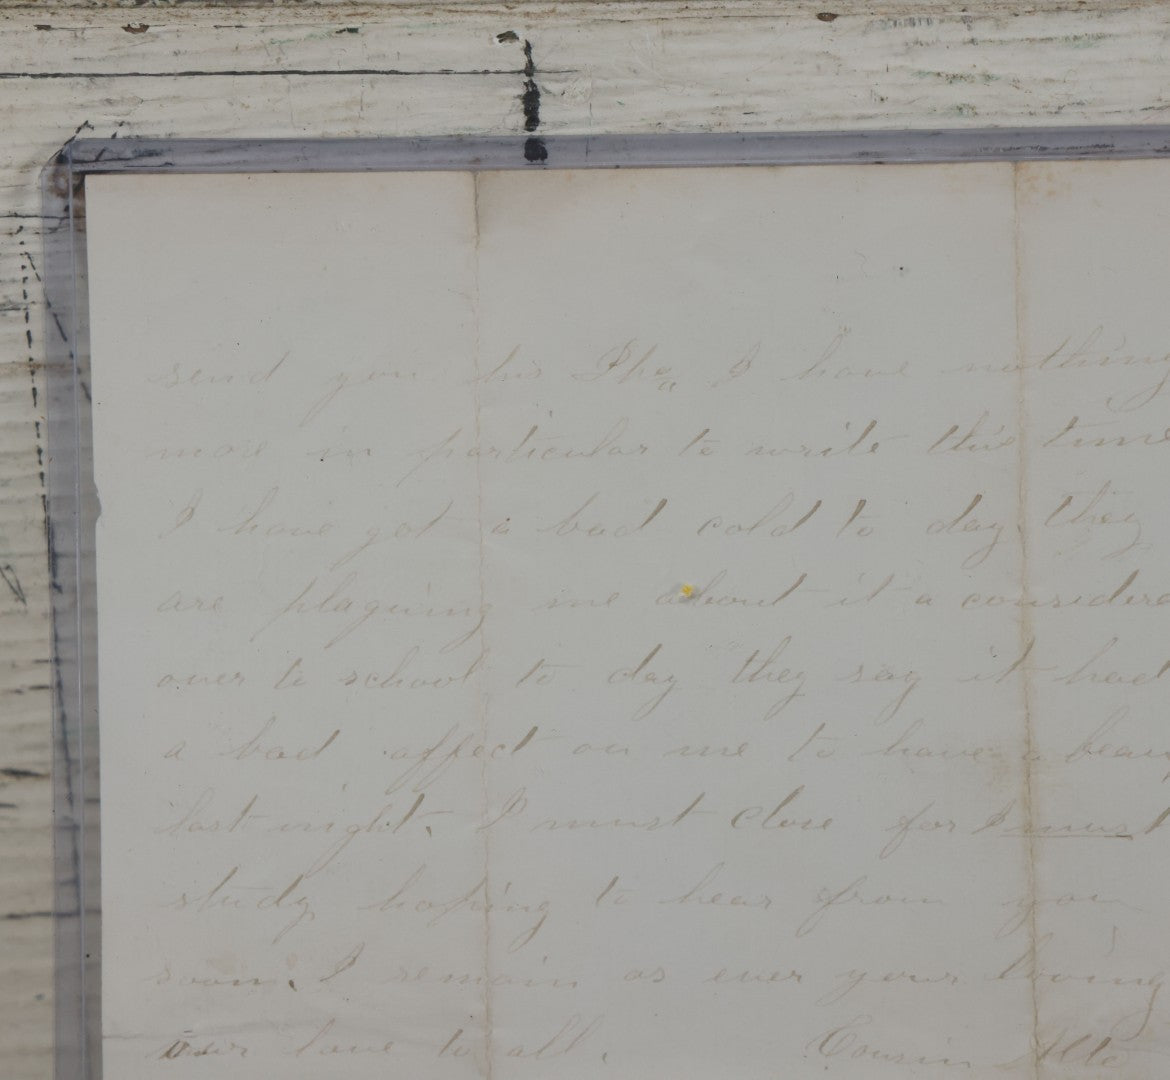 send you his Pho". I have nothing
more in particular to write this time
I have got a bad cold to day. they
are plaguing me about it a considera
over to school to day they say it had
a bad affect on me to have a beau
last night. I must close for I must
study hoping to hear from you
soon. I remain as ever your loving
our love to all. Cousin